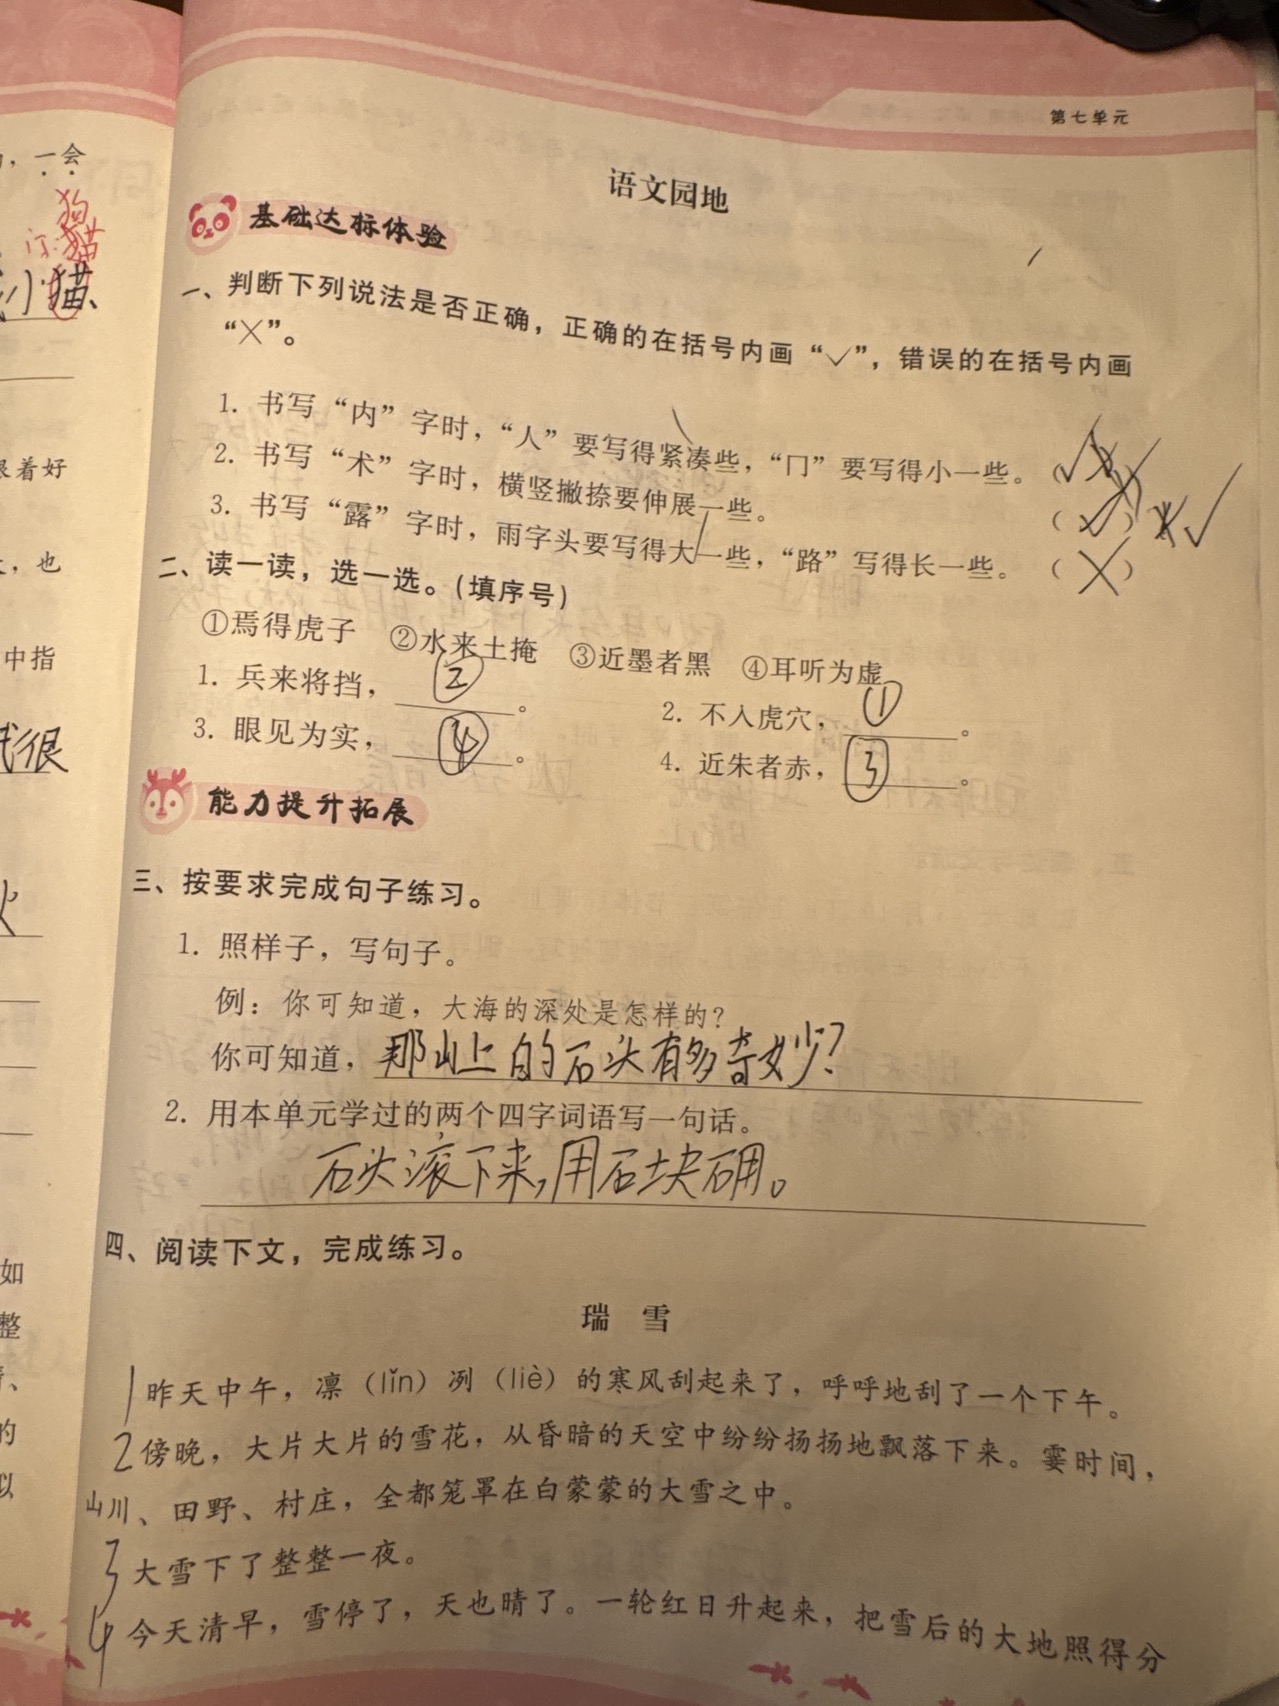 第七单元
语文园地
基础达标体验
一、判断下列说法是否正确，正确的在括号内画“✓”，错误的在括号内画
“╳”。
1. 书写“内”字时，“人”要写得紧凑些，“冂”要写得小一些。（
2. 书写“术”字时，横竖撇捺要伸展一些。（ ） ✓
3. 书写“露”字时，雨字头要写得大一些，“路”写得长一些。（╳）
二、读一读，选一选。(填序号)
①焉得虎子 ②水来土掩 ③近墨者黑 ④耳听为虚
1. 兵来将挡，②。 2. 不入虎穴，①。
3. 眼见为实，④。 4. 近朱者赤，3。
能力提升拓展
三、按要求完成句子练习。
1. 照样子，写句子。
例：你可知道，大海的深处是怎样的？
你可知道，那山上的石头有多奇妙？
2. 用本单元学过的两个四字词语写一句话。
石头滚下来，用石块。
四、阅读下文，完成练习。
瑞 雪
1 昨天中午，凛（lǐn）冽（liè）的寒风刮起来了，呼呼地刮了一个下午。
2 傍晚，大片大片的雪花，从昏暗的天空中纷纷扬扬地飘落下来。霎时间，
山川、田野、村庄，全都笼罩在白蒙蒙的大雪之中。
3 大雪下了整整一夜。
4 今天清早，雪停了，天也晴了。一轮红日升起来，把雪后的大地照得分
，一会
狗
猫
小猫、
跟着好
，也
中指
我很
火
如
整
、
的
以